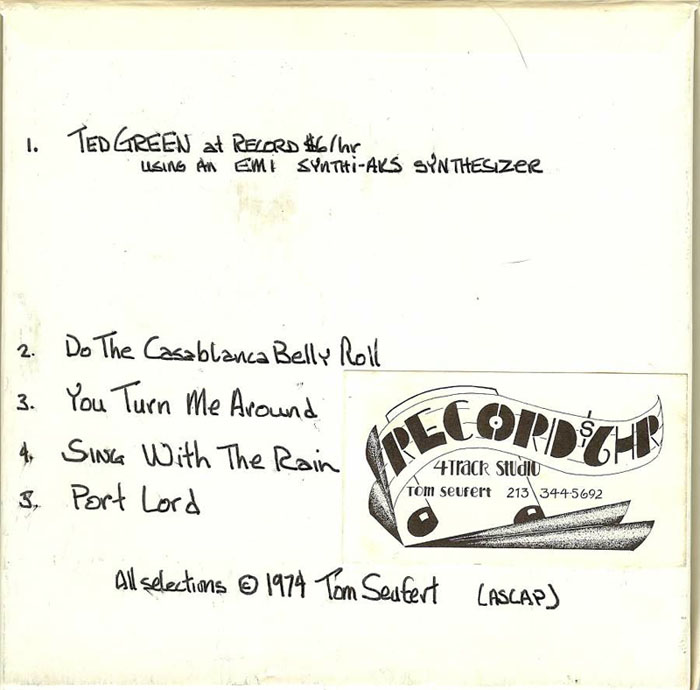 1. TED GREEN at RECORD $6/hr
USING AN EMI SYNTHI-AKS SYNTHESIZER
2. Do The Casablanca Belly Roll
3. You Turn Me Around
4. Sing With The Rain
5. Port Lord
RECORD $6 HR
4 TRACK STUDIO
TOM SEUFERT 213 344-5692
All selections © 1974 Tom Seufert (ASCAP)